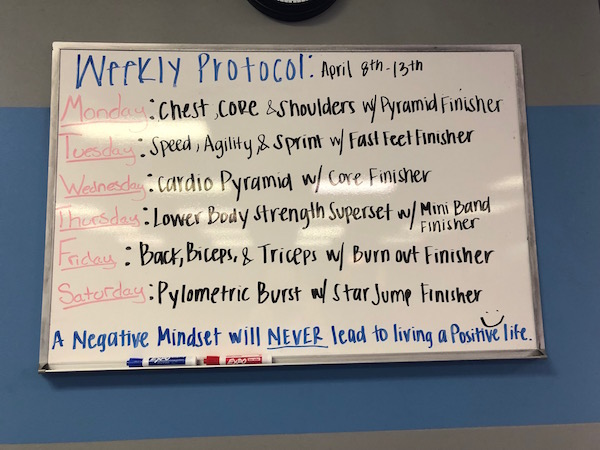 Weekly Protocol: April 8th-13th
Monday: Chest, Core & Shoulders w/ Pyramid Finisher
Tuesday: Speed, Agility & Sprint w/ Fast Feet Finisher
Wednesday: Cardio Pyramid w/ Core Finisher
Thursday: Lower Body Strength Superset w/ Mini Band
Finisher
Friday: Back, Biceps, & Triceps w/ Burn out Finisher
Saturday: Pylometric Burst w/ Star Jump Finisher
A Negative Mindset will NEVER lead to living a Positive life.
EXPO EXPO